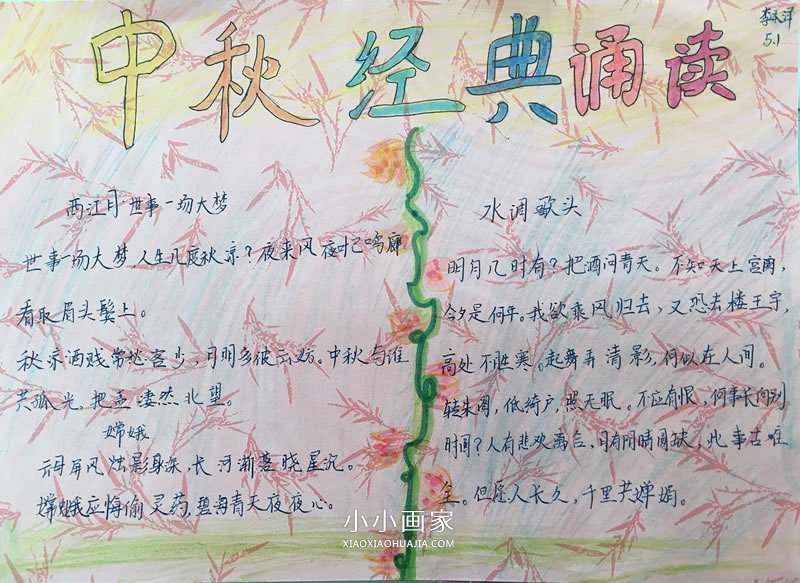 中秋经典诵读
5.1
西江月·世事一场大梦
世事一场大梦,人生几度秋凉?夜来风夜已鸣廊
看取眉头鬓上。
秋凉酒贱常愁客少,月明多被云妨。中秋与谁
共孤光,把盏凄然北望。
嫦娥
云母屏风烛影深,长河渐落晓星沉。
嫦娥应悔偷灵药,碧海青天夜夜心。
水调歌头
明月几时有?把酒问青天。不知天上宫阙,
今夕是何年。我欲乘风归去,又恐去楼王宇,
高处不胜寒。起舞弄清影,何似在人间。
转朱阁,低绮户,照无眠。不应有恨,何事长向别
时圆?人有悲欢离合,月有阴晴圆缺,此事古难
全。但愿人长久,千里共婵娟。
小小画家
XIAOXIAOHUAJIA.COM